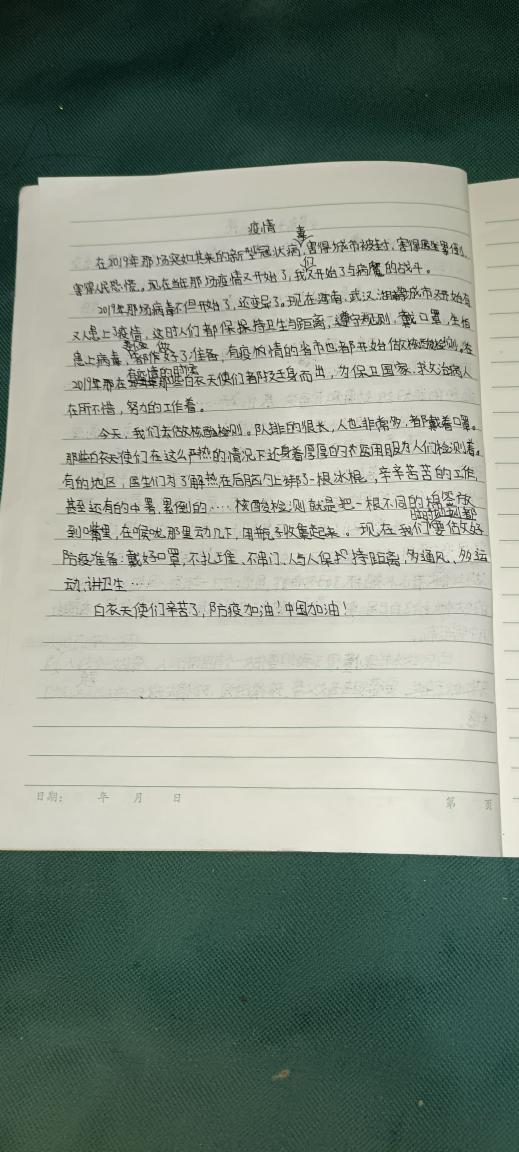 疫情
在2019年那场突如其来的新型冠状病毒,害得城市被封,害得医生累倒,
害得人民恐慌。现在当年那场疫情又开始了,我们又开始了与病魔的战斗。
2019年那场病毒不但开始了,还变异了。现在海南、武汉、湖南城市又开始有
又人患上了疫情,这时人们都保持卫生与距离,遵守规则,戴口罩,坐怕
患上病毒,都做好了准备,有疫情的省市也都开始做核酸检测。在
2019年那在有疫情的时候那些白衣天使们都挺身而出,为保卫国家、救治病人
在所不惜,努力的工作着。
今天,我们去做核酸检测。队排的很长,人也非常多,都戴着口罩。
那些白衣天使们在这么严热的情况下还身着厚厚的防护服为人们检测着。
有的地区,医生们为了解热在后脑勺上绑了一根冰棍,辛辛苦苦的工作,
甚至还有的中暑、累倒的……核酸检测就是把一根不同的棉签放
到嘴里,在喉咙那里动几下,用瓶子收集起来。现在我们随时随刻都要做好
防疫准备:戴好口罩,不扎堆,不串门,人与人保持距离,多通风、多运
动,讲卫生…
白衣天使们辛苦了,防疫加油!中国加油!
日期: 年 月 日
第 页